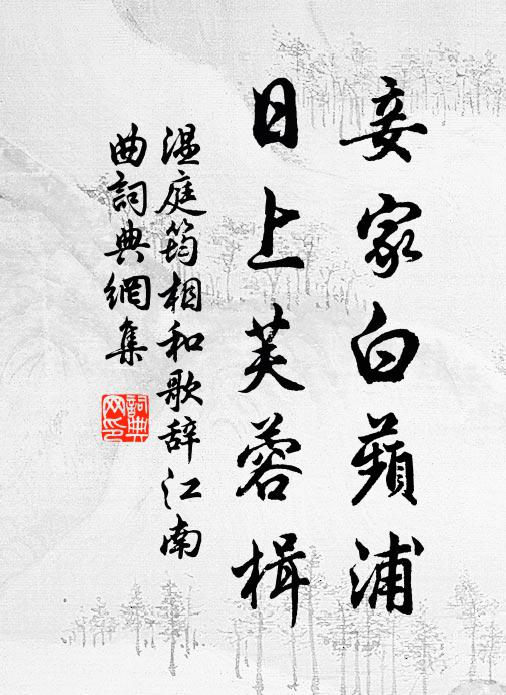 妾家白蘋浦
日上芙蓉楫
溫庭筠相和歌辞江南
曲詞典網集
詞典网印